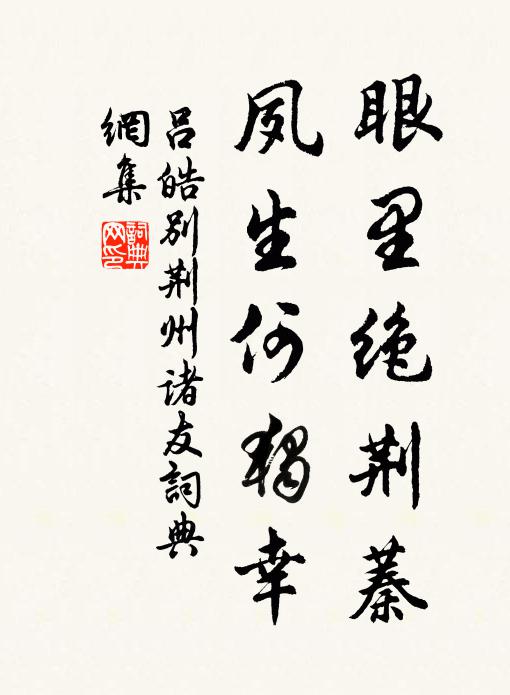 眼里绝荆蓁
夙生何独幸
吕皓别荆州诸友詞典
網集
詞典
网印